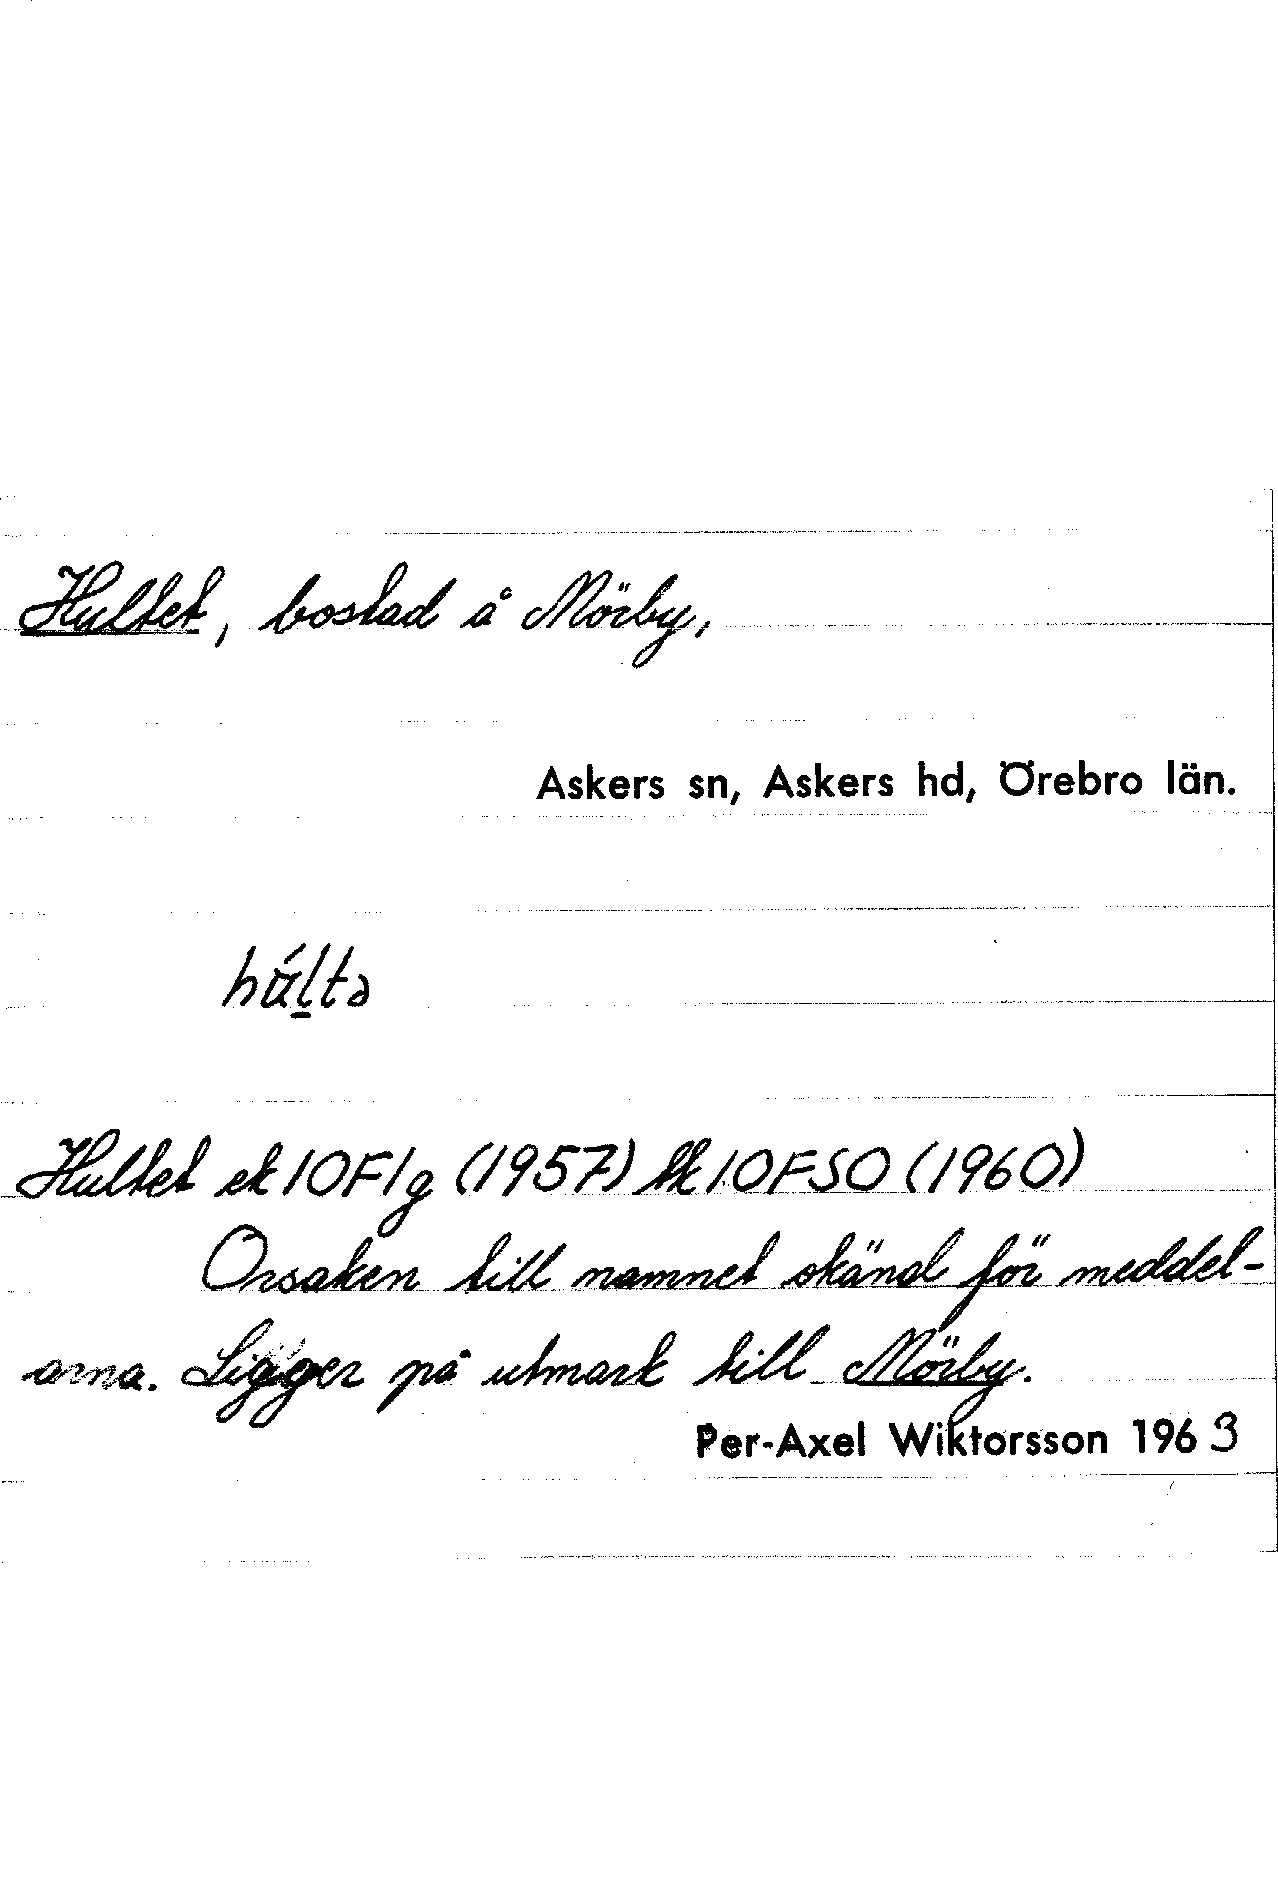 Hultet, bostad å Mörby,
Askers sn, Askers hd, Örebro län.
Hultet ek 10F1g (1957) tk 10FSO (1960)
Orsaken till namnet okänd för meddel-
arna. Ligger på utmark till Mörby.
Per-Axel Wiktorsson 1963